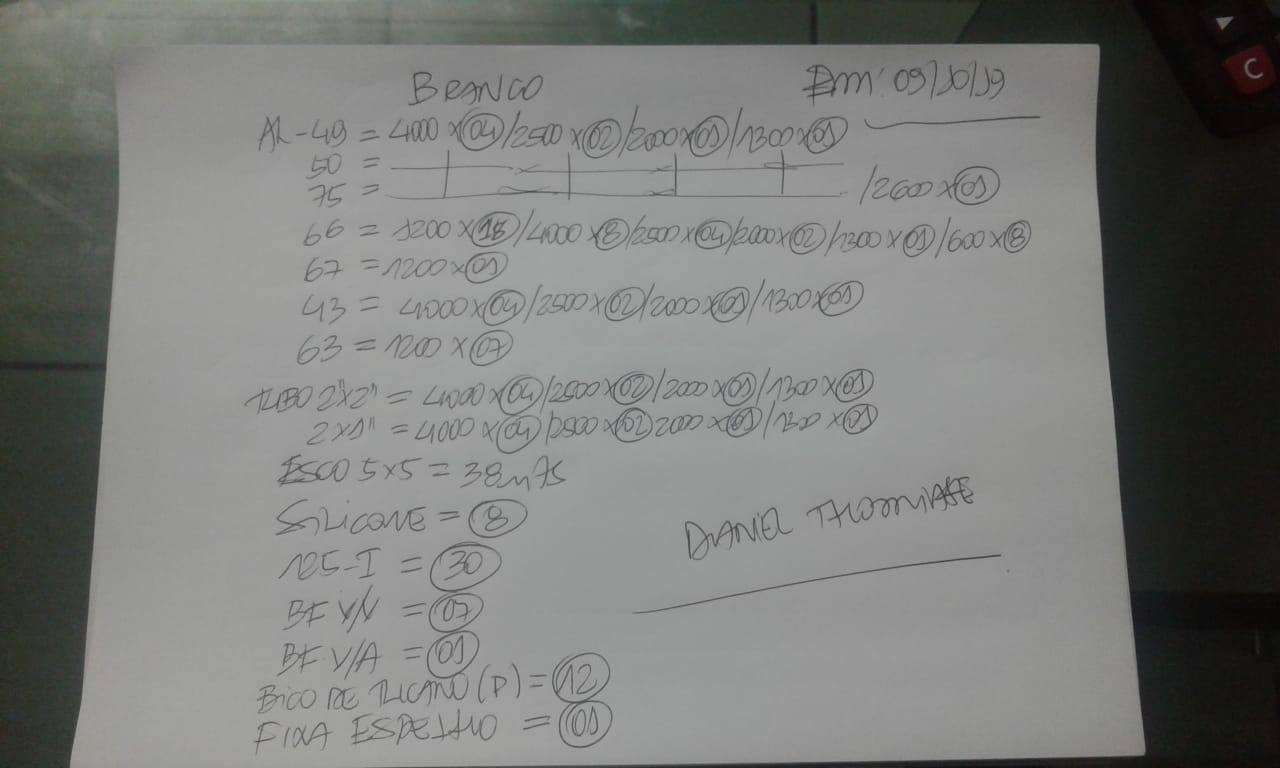 BRANCO Em: 09/10/19
AL-49 = 4000 x 04 / 2500 x 02 / 2000 x 01 / 1300 x 01
50 =
75 = / 2600 x 01
66 = 1200 x 15 / 4000 x 8 / 2500 x 04 / 2000 x 02 / 1300 x 01 / 600 x 8
67 = 1200 x 01
43 = 4000 x 04 / 2500 x 02 / 2000 x 01 / 1300 x 01
63 = 1200 x 07
TUBO 2"x2" = 4000 x 04 / 2500 x 02 / 2000 x 01 / 1300 x 01
2x1" = 4000 x 04 / 2500 x 02 2000 x 01 / 1300 x 01
5x5 = 38mts
SILICONE = 8
125-I = 30
BF V/N = 07
BF V/A = 01
BICO DE TUCANO (P) = 12
FIXA ESPELHO = 01
DANIEL